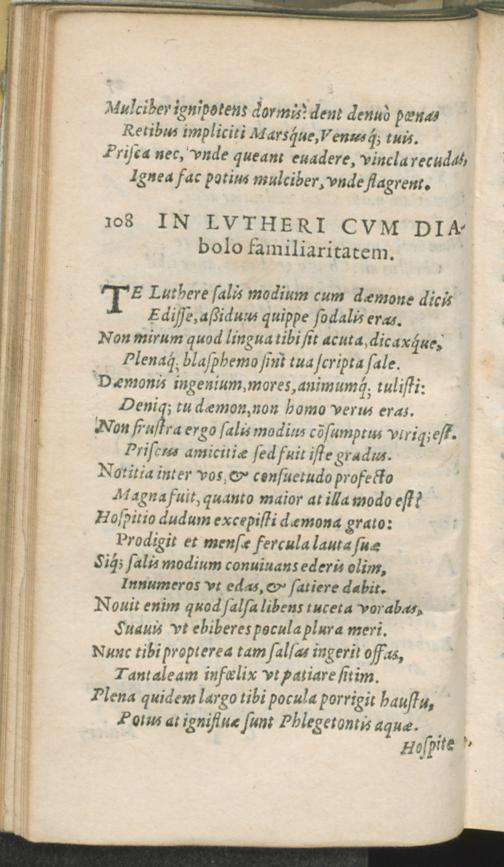 Mulciber ignipotens dormis? dent denuò pœnas
Retibus impliciti Marsq́ue, Venusq́; tuis.
Prisca nec, vnde queant euadere, vincla recudas,
Ignea fac potius mulciber, vnde flagrent.
108 IN LVTHERI CVM DIA-
bolo familiaritatem.
TE Luthere salis modium cum dæmone dicis
Edisse, aßiduus quippe sodalis eras.
Non mirum quod lingua tibi sit acuta, dicaxq́ue,
Plenaq́; blasphemo sint tua scripta sale.
Dæmonis ingenium, mores, animumq́; tulisti:
Deniq; tu dæmon, non homo verus eras.
Non frustra ergo salis modius cōsumptus vtriq; est.
Priscus amicitiæ sed fuit iste gradus.
Notitia inter vos, & consuetudo profecto
Magna fuit, quanto maior at illa modo est?
Hospitio dudum excepisti dæmona grato:
Prodigit et mensæ fercula lauta suæ
Siq́; salis modium conuiuans ederis olim,
Innumeros vt edas, & satiere dabit.
Nouit enim quod salsa libens tuceta vorabas,
Suauis vt ebiberes pocula plura meri.
Nunc tibi propterea tam salsas ingerit offas,
Tantaleam infœlix vt patiare sitim.
Plena quidem largo tibi pocula porrigit haustu,
Potus at ignifluæ sunt Phlegetontis aquæ.
Hospite